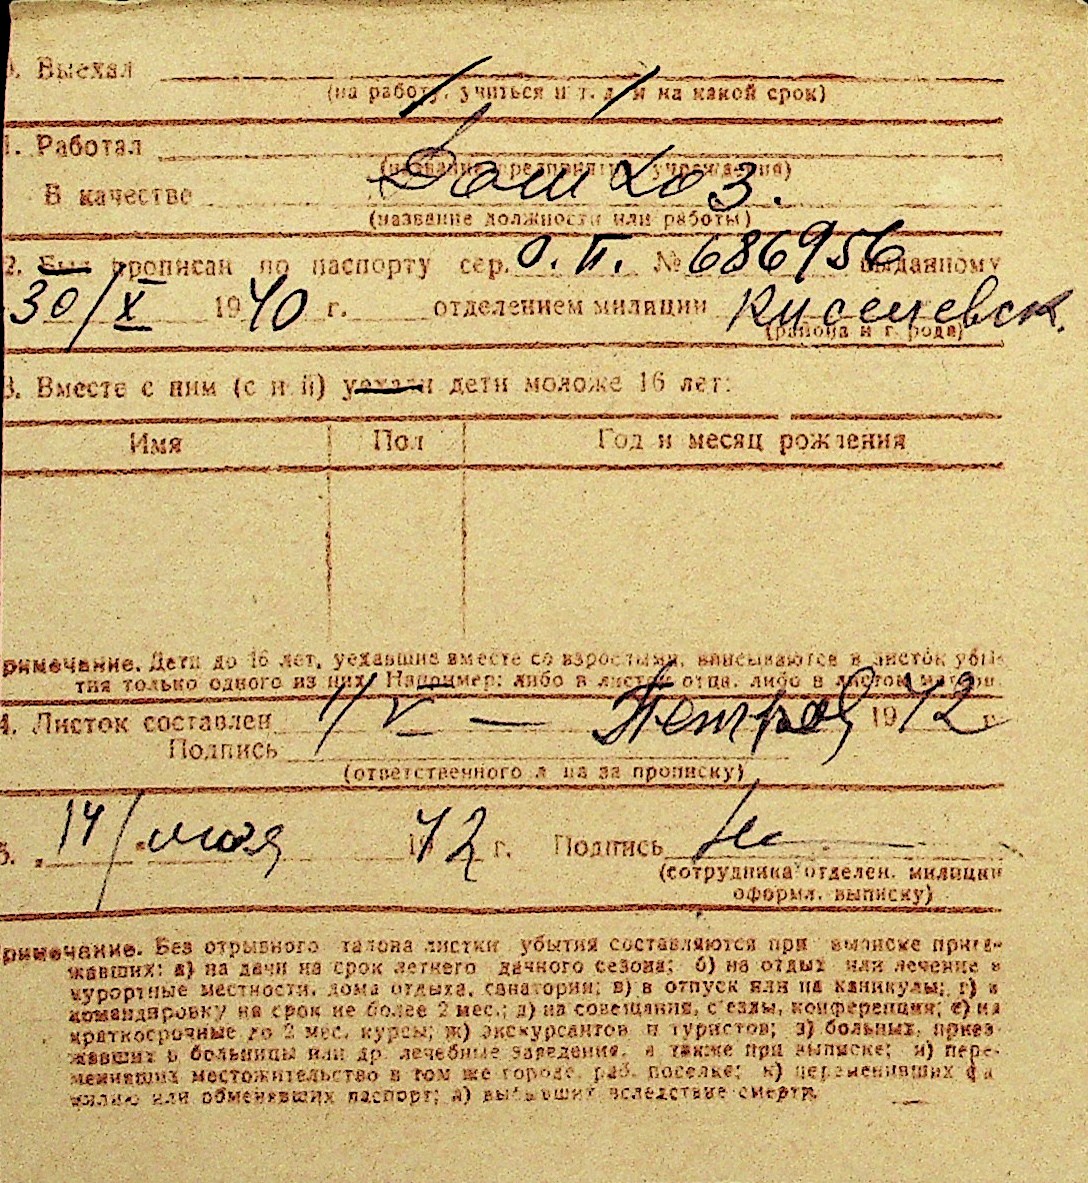 0. Выехал
(на работу, учиться и т. д. и на какой срок)
1. Работал
(название предприятия, учреждения)
Дом хоз.
В качестве
(название должности или работы)
2. Был прописан по паспорту сер. О. П. № 686956 выданному
30/X 1940 г. отделением милиции Киселевск.
(района и города)
3. Вместе с ним (с ней) уехали дети моложе 16 лет:
Имя Пол Год и месяц рождения
римечание. Дети до 16 лет, уехавшие вместе со взрослыми, вписываются в листок убы-
тия только одного из них. Например: либо в листок отца, либо в листок матери.
4. Листок составлен 1942 г.
Подпись
(ответственного лица за прописку)
5. „14/" мая 1942 г. Подпись
(сотрудника отделен. милиции
оформл. выписку)
римечание. Без отрывного талона листки убытия составляются при выписке приез-
жавших: а) на дачи на срок летнего дачного сезона; б) на отдых или лечение в
курортные местности, дома отдыха, санатории; в) в отпуск или на каникулы; г) в
командировку на срок не более 2 мес.; д) на совещания, съезды, конференции; е) на
краткосрочные до 2 мес. курсы; ж) экскурсантов и туристов; з) больных, приез-
жавших в больницы или др. лечебные заведения, а также при выписке; и) пере-
менивших местожительство в том же городе, раб. поселке; к) переменивших фа-
милию или обменявших паспорт; л) выбывших вследствие смерти.